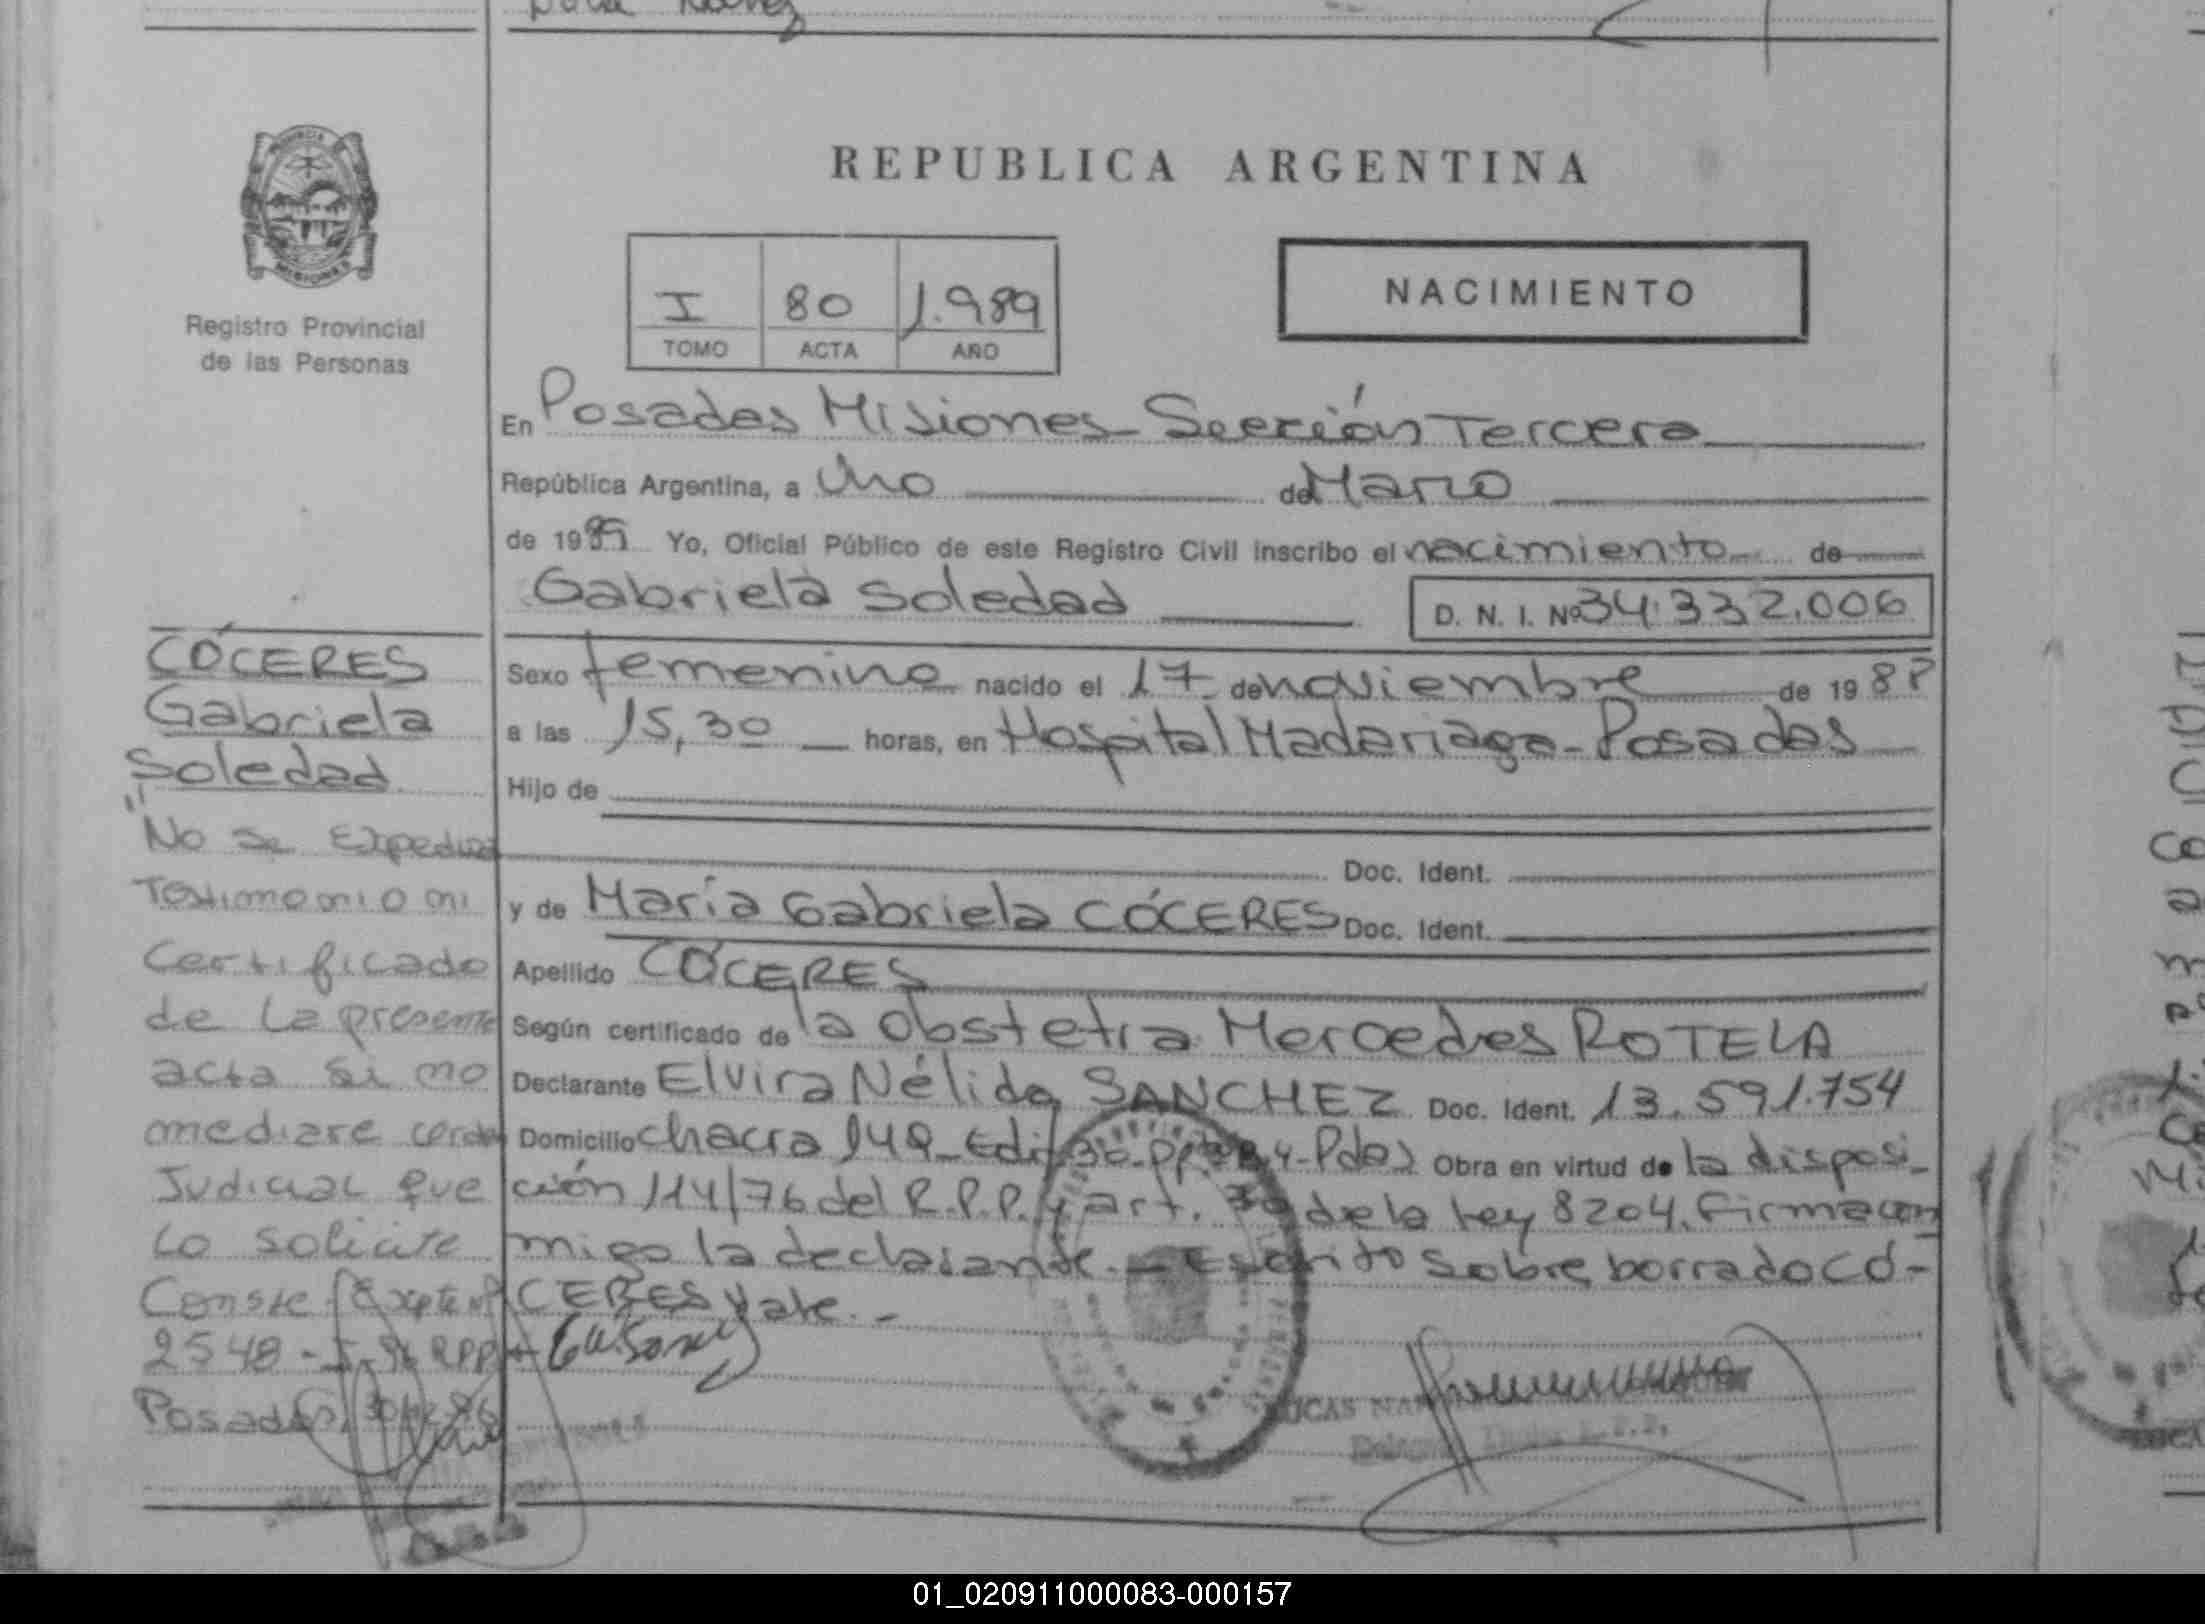 REPUBLICA ARGENTINA
PROVINCIA
MISIONES
Registro Provincial
de las Personas
I 80 1.989
TOMO ACTA AÑO
NACIMIENTO
En Posadas Misiones Sección Tercera
República Argentina, a Uno de Marzo
de 1989 Yo, Oficial Público de este Registro Civil inscribo el nacimiento de
Gabriela Soledad D. N. I. Nº 34.332.006
Sexo femenino nacido el 17 de noviembre de 1988
a las 15,30 horas, en Hospital Madariaga - Posadas
Hijo de
Doc. Ident.
y de María Gabriela CÓCERES Doc. Ident.
Apellido CÓCERES
Según certificado de la obstetra Mercedes ROTELA
Declarante Elvira Nélida SANCHEZ Doc. Ident. 13.591.754
Domicilio chacra 149 - Edif 30 - Pdas Obra en virtud de la disposi-
ción 114/76 del R.P.P. y art. de la Ley 8204. Firma con
migo la declarante. - Escrito sobre borrado CÓ-
CERES vale. -
CÓCERES
Gabriela
Soledad
"No se Expedirá
Testimonio ni
Certificado
de la presente
acta si no
mediare orden
Judicial que
lo solicite
Conste (Expte nº
2548 - I - 96 RPP
Posadas,
01_020911000083-000157